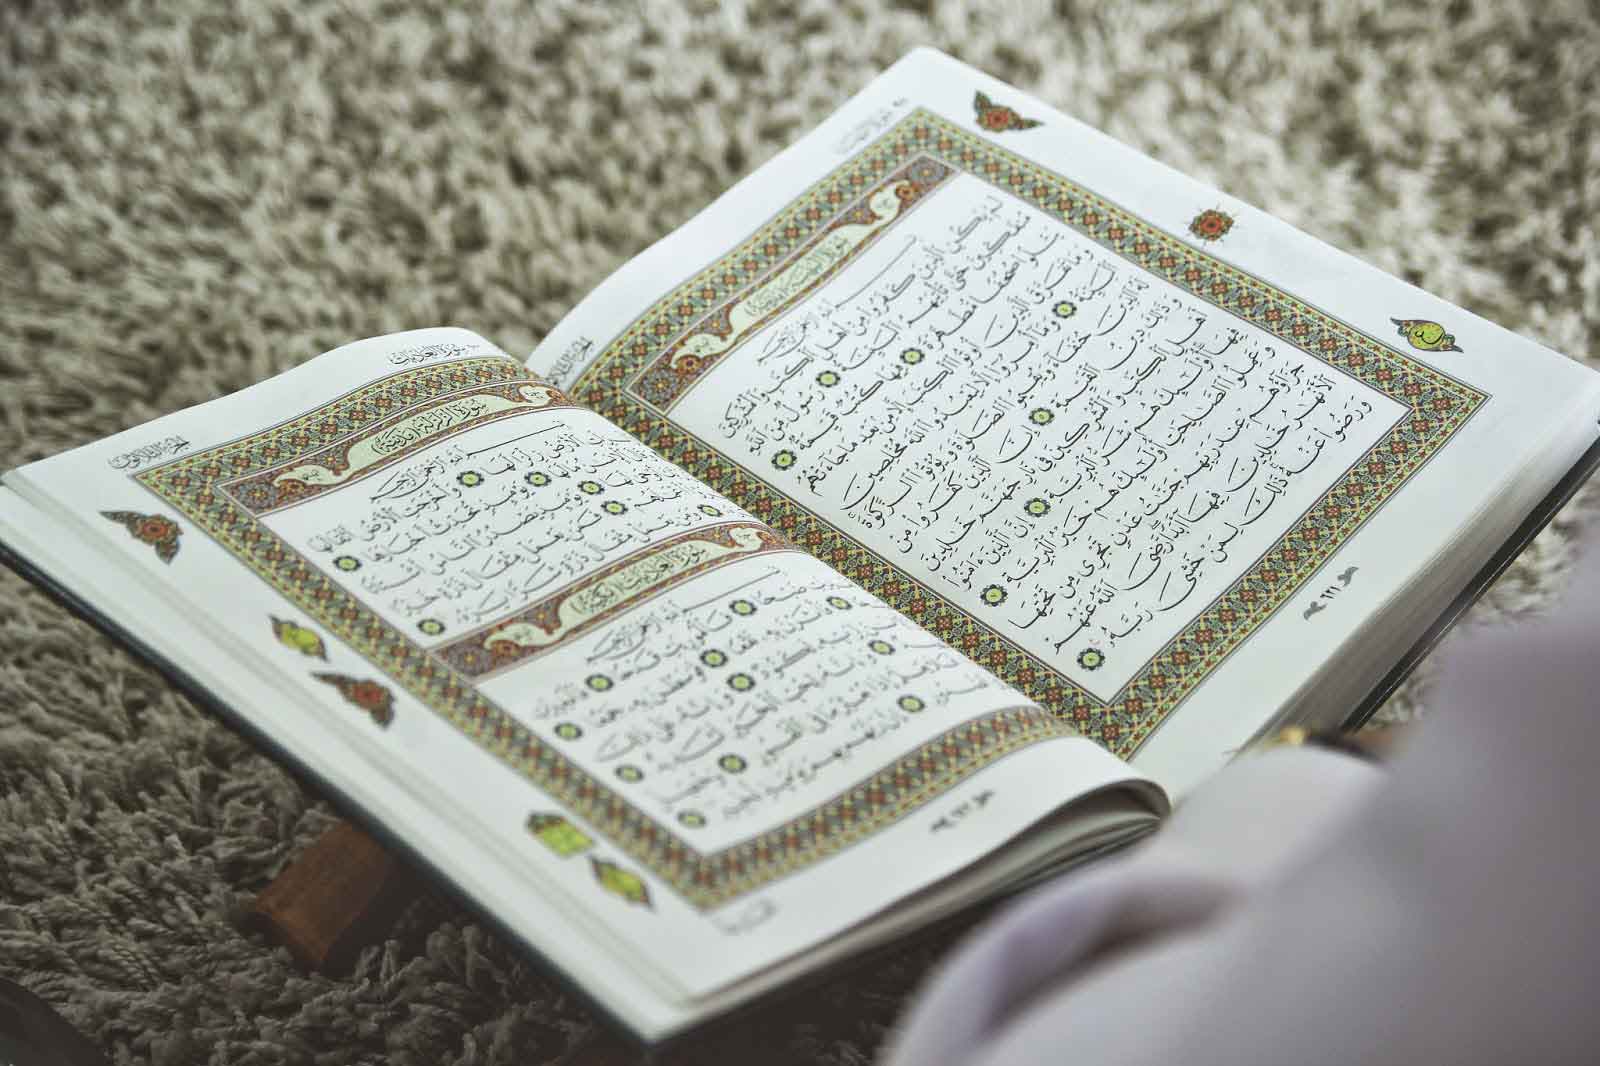 سُورَةُ الْبَيِّنَةِ (مَدَنِيَّة)
بِسْمِ اللَّهِ الرَّحْمَٰنِ الرَّحِيمِ
لَمْ يَكُنِ الَّذِينَ كَفَرُوا مِنْ أَهْلِ الْكِتَٰبِ وَالْمُشْرِكِينَ
مُنفَكِّينَ حَتَّىٰ تَأْتِيَهُمُ الْبَيِّنَةُ ١ رَسُولٌ مِّنَ اللَّهِ
يَتْلُوا صُحُفًا مُّطَهَّرَةً ٢ فِيهَا كُتُبٌ قَيِّمَةٌ ٣
وَمَا تَفَرَّقَ الَّذِينَ أُوتُوا الْكِتَٰبَ إِلَّا مِنۢ بَعْدِ مَا جَآءَتْهُمُ
الْبَيِّنَةُ ٤ وَمَآ أُمِرُوٓا إِلَّا لِيَعْبُدُوا اللَّهَ مُخْلِصِينَ
لَهُ الدِّينَ حُنَفَآءَ وَيُقِيمُوا الصَّلَوٰةَ وَيُؤْتُوا الزَّكَوٰةَ
وَذَٰلِكَ دِينُ الْقَيِّمَةِ ٥ إِنَّ الَّذِينَ كَفَرُوا مِنْ
أَهْلِ الْكِتَٰبِ وَالْمُشْرِكِينَ فِي نَارِ جَهَنَّمَ خَٰلِدِينَ
فِيهَآ أُولَٰٓئِكَ هُمْ شَرُّ الْبَرِيَّةِ ٦ إِنَّ الَّذِينَ ءَامَنُوا
وَعَمِلُوا الصَّٰلِحَٰتِ أُولَٰٓئِكَ هُمْ خَيْرُ الْبَرِيَّةِ ٧
جَزَآؤُهُمْ عِندَ رَبِّهِمْ جَنَّٰتُ عَدْنٍ تَجْرِي مِن تَحْتِهَا
الْأَنْهَٰرُ خَٰلِدِينَ فِيهَآ أَبَدًا رَّضِيَ اللَّهُ عَنْهُمْ
وَرَضُوا عَنْهُ ذَٰلِكَ لِمَنْ خَشِيَ رَبَّهُ ٨
٦٢١
سُورَةُ الْعَادِيَاتِ
سُورَةُ الزَّلْزَلَةِ (مَدَنِيَّة)
بِسْمِ اللَّهِ الرَّحْمَٰنِ الرَّحِيمِ
زُلْزِلَتِ الْأَرْضُ زِلْزَالَهَا ١ وَأَخْرَجَتِ الْأَرْضُ أَثْقَالَهَا ٢
الْإِنسَٰنُ مَا لَهَا ٣ يَوْمَئِذٍ تُحَدِّثُ أَخْبَارَهَا ٤
لَهَا ٥ يَوْمَئِذٍ يَصْدُرُ النَّاسُ أَشْتَاتًا
٦ فَمَن يَعْمَلْ مِثْقَالَ ذَرَّةٍ خَيْرًا
٧ وَمَن يَعْمَلْ مِثْقَالَ ذَرَّةٍ شَرًّا يَرَهُ ٨
سُورَةُ الْعَادِيَاتِ (مَكِّيَّة)
بِسْمِ اللَّهِ الرَّحْمَٰنِ الرَّحِيمِ
ضَبْحًا ١ فَالْمُورِيَٰتِ قَدْحًا ٢ فَالْمُغِيرَٰتِ
٣ فَأَثَرْنَ بِهِ نَقْعًا ٤ فَوَسَطْنَ بِهِ جَمْعًا ٥
لِرَبِّهِ لَكَنُودٌ ٦ وَإِنَّهُ عَلَىٰ ذَٰلِكَ
٧ وَإِنَّهُ لِحُبِّ الْخَيْرِ لَشَدِيدٌ ٨
أَفَلَا يَعْلَمُ إِذَا بُعْثِرَ مَا فِي الْقُبُورِ ٩ وَحُصِّلَ
١٠ إِنَّ رَبَّهُم بِهِمْ يَوْمَئِذٍ لَّخَبِيرٌ ١١
٦٢٢